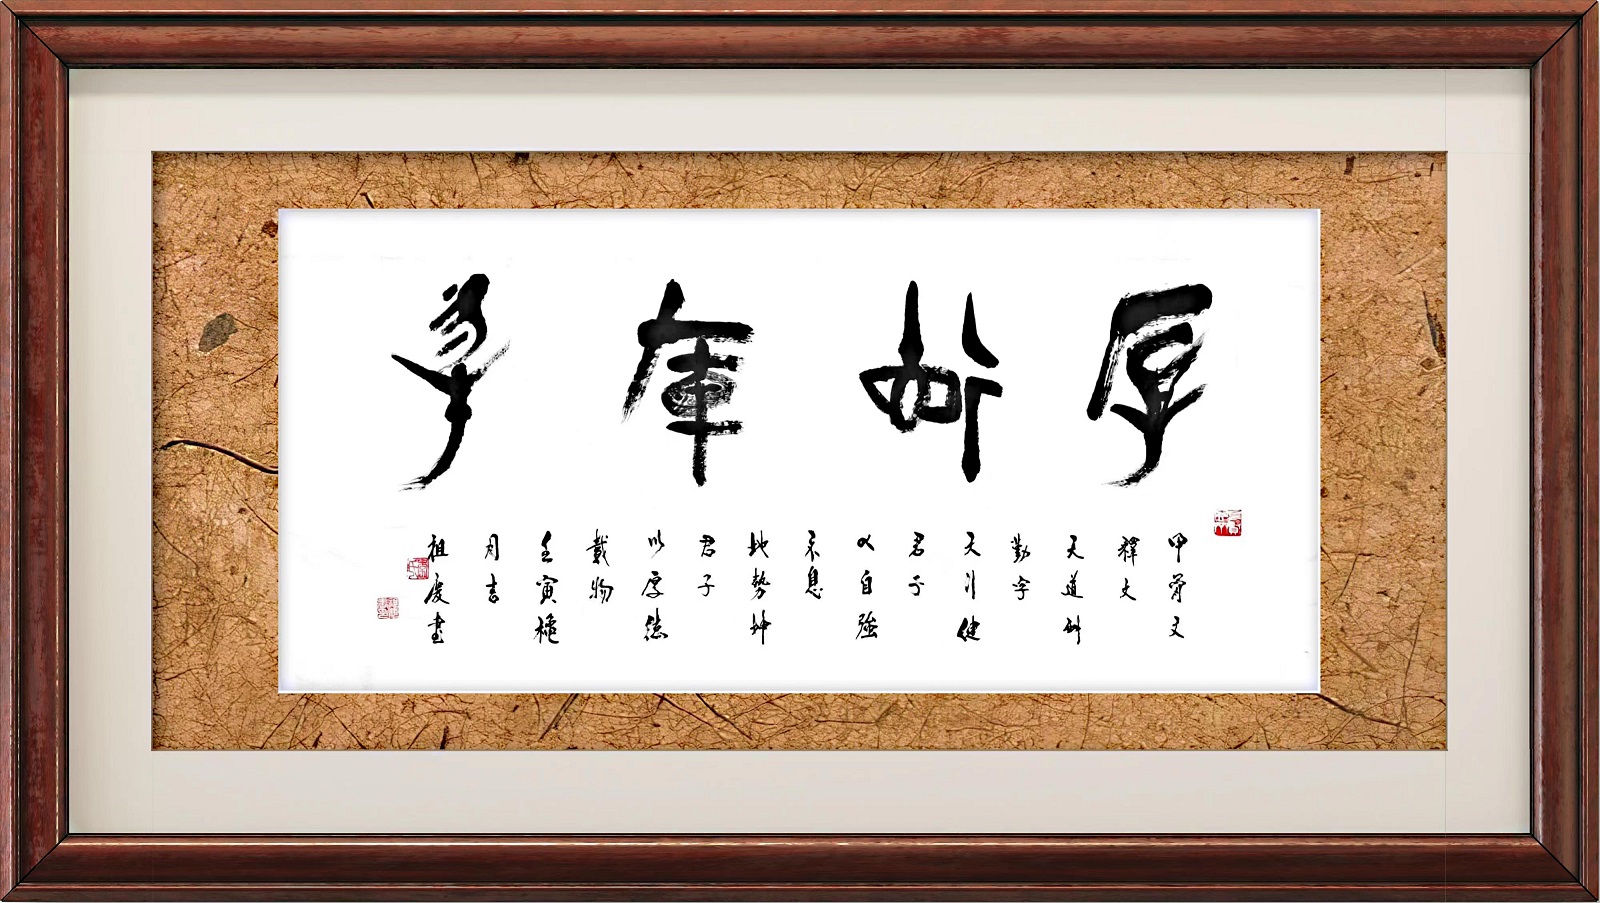 甲骨文
釋文
天道酬
勤字
天行健
君子
以自強
不息
地勢坤
君子
以厚德
載物
壬寅穐
月吉
祖 書